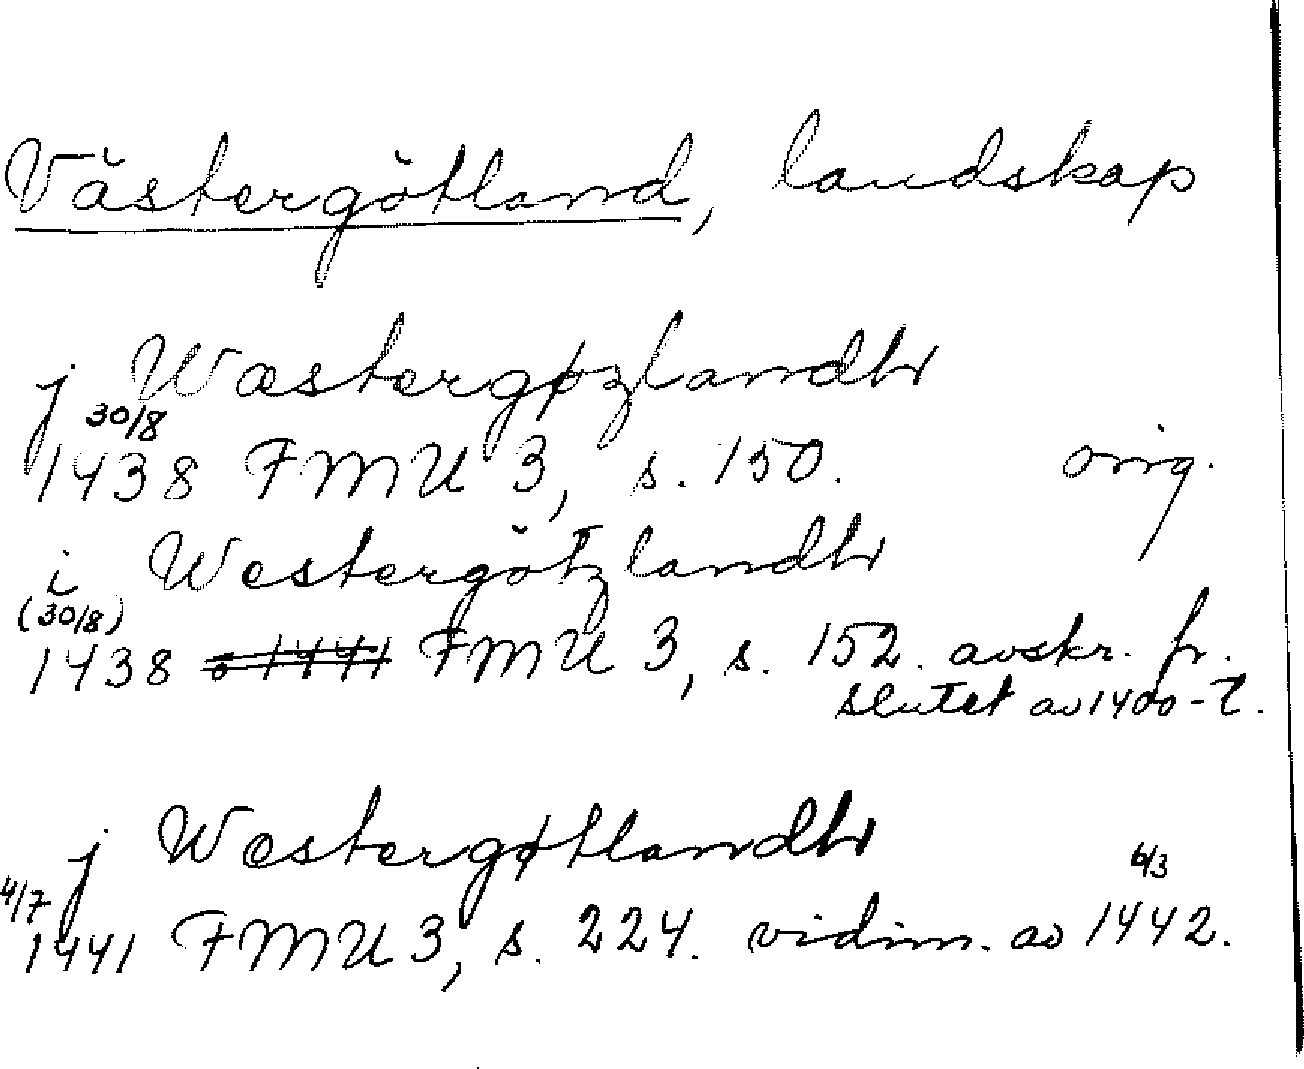 Västergötland, landskap
j Wæstergøzlandh
30/8
1438 FMU 3, s. 150. orig.
i Westergötzlandh
(30/8)
1438 o 1441 FMU 3, s. 152. avskr. fr.
slutet av 1400-t.
j Wæstergøtlandh
4/7 6/3
1441 FMU 3, s. 224. vidim. av 1442.